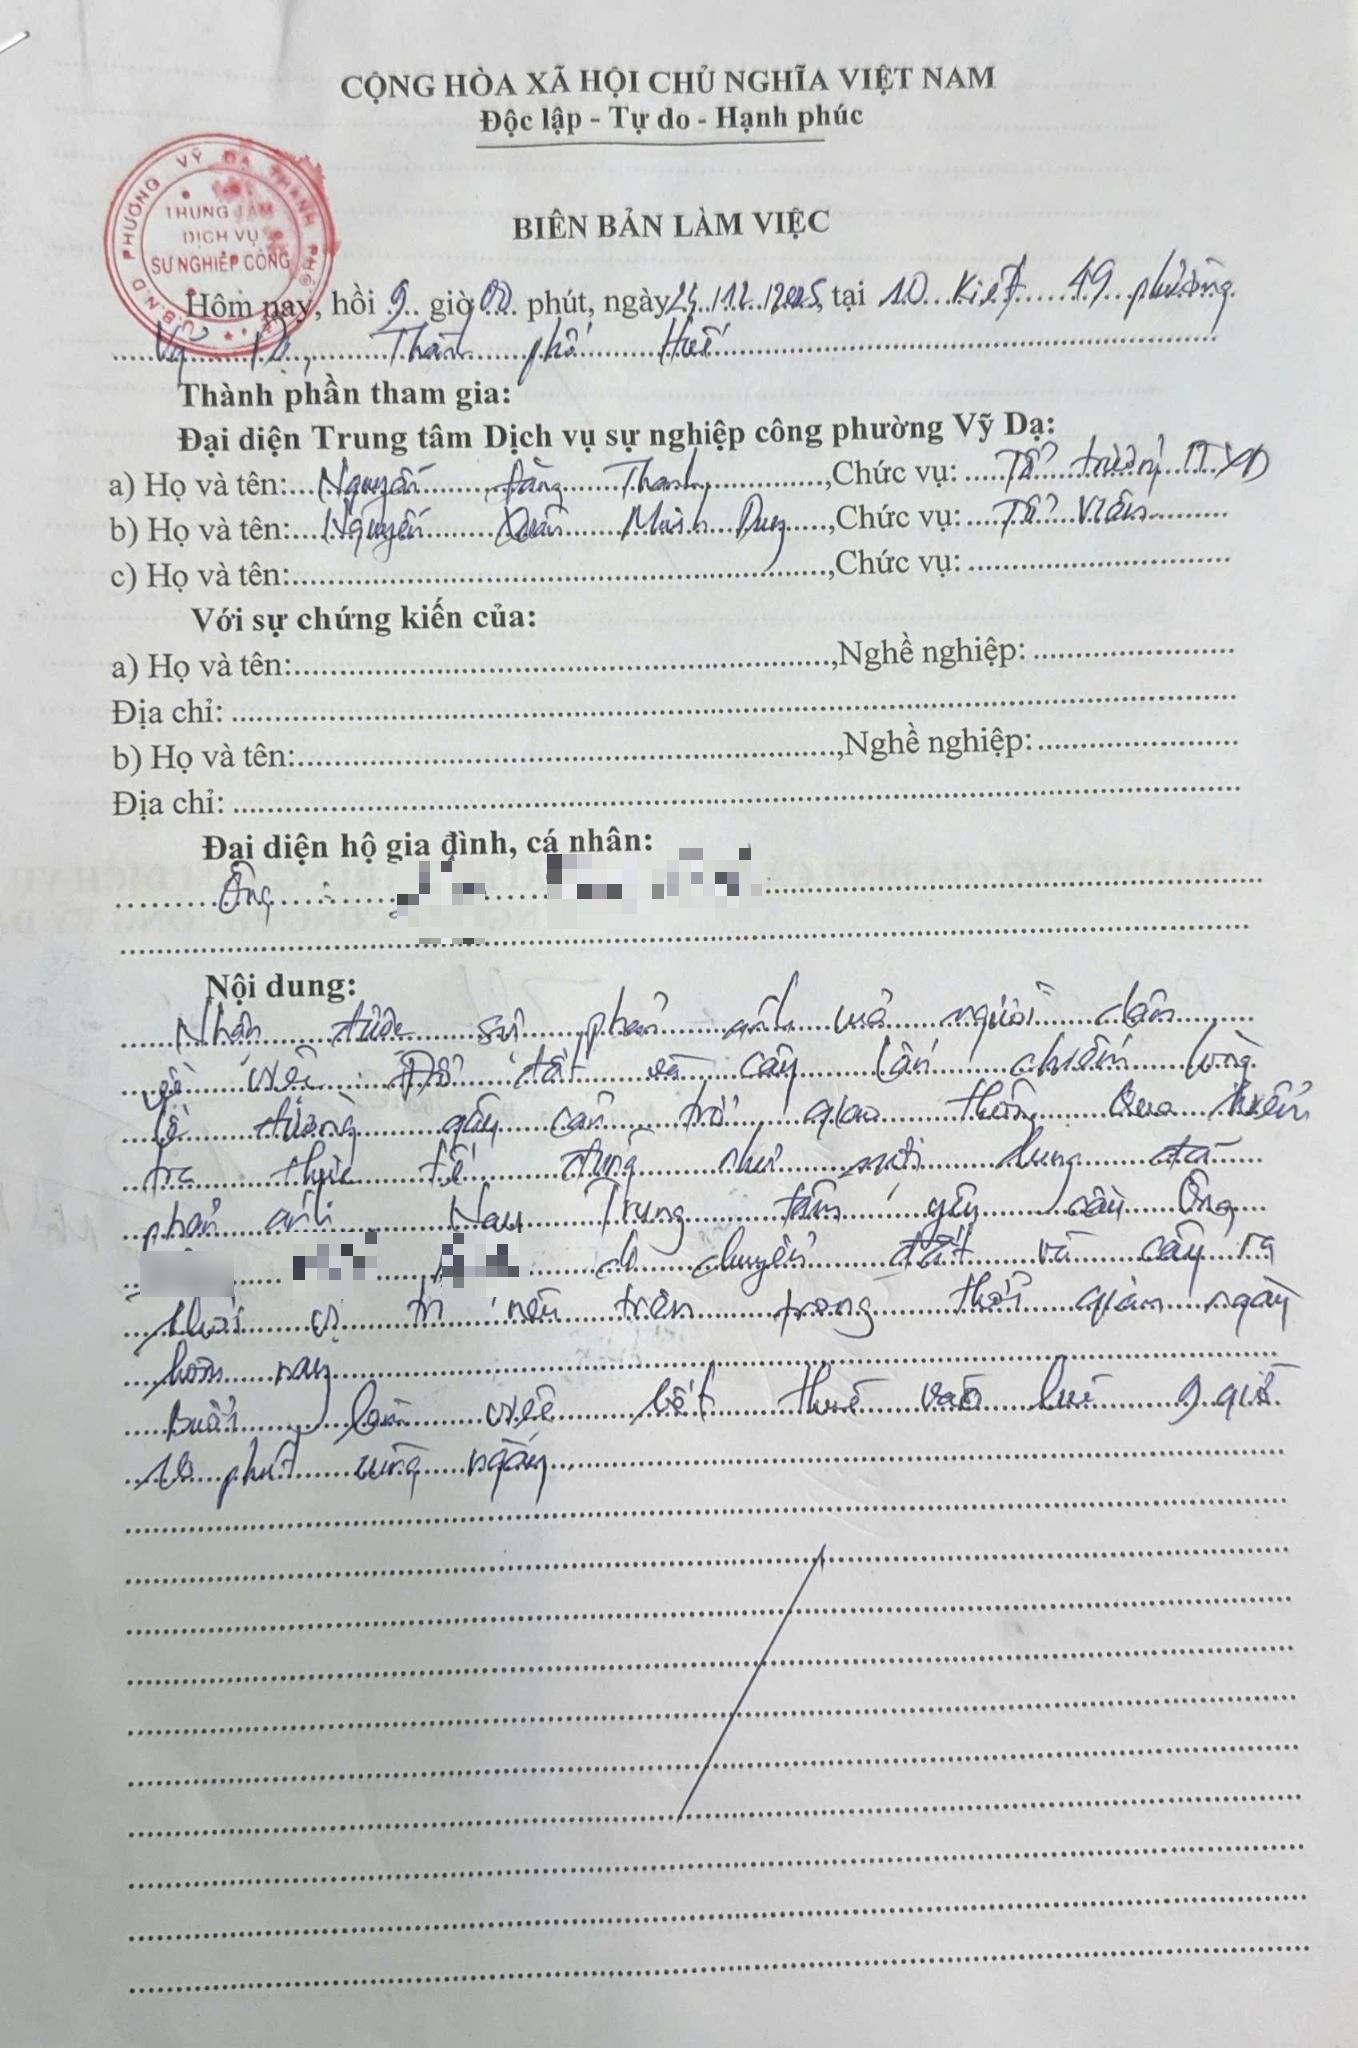 CỘNG HÒA XÃ HỘI CHỦ NGHĨA VIỆT NAM
Độc lập - Tự do - Hạnh phúc
U.B.N.D PHƯỜNG VỸ DẠ THÀNH PHỐ
TRUNG TÂM
DỊCH VỤ
SỰ NGHIỆP CÔNG
BIÊN BẢN LÀM VIỆC
Hôm nay, hồi 9 giờ 00 phút, ngày /12/2025, tại 10 Kiệt 49 phường
Vỹ Dạ, Thành phố Huế
Thành phần tham gia:
Đại diện Trung tâm Dịch vụ sự nghiệp công phường Vỹ Dạ:
a) Họ và tên: Nguyễn Đăng Thanh, Chức vụ: Tổ trưởng TTXD
b) Họ và tên: Nguyễn Xuân Minh Duy, Chức vụ: Tổ viên
c) Họ và tên:, Chức vụ:
Với sự chứng kiến của:
a) Họ và tên:, Nghề nghiệp:
Địa chỉ:
b) Họ và tên:, Nghề nghiệp:
Địa chỉ:
Đại diện hộ gia đình, cá nhân:
Ông :
Nội dung:
Nhận được sự phản ánh của người dân
về việc Đổ đất và cây lấn chiếm lòng
lề đường gây cản trở giao thông. Qua kiểm
tra thực tế đúng như nội dung đã
phản ánh. Nay Trung tâm yêu cầu Ông
di chuyển đất và cây ra
khỏi vị trí nêu trên trong thời gian ngày
hôm nay
Buổi làm việc kết thúc vào lúc 9 giờ
10 phút cùng ngày.